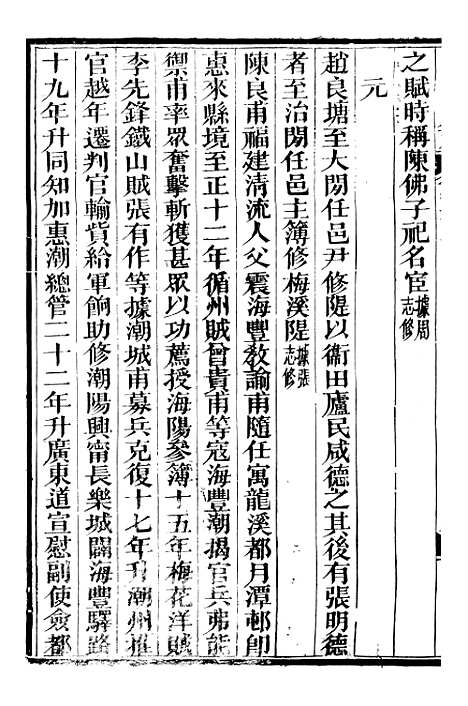 之賦時稱陳佛子祀名宦據周志修
元
趙良塘至大閒任邑尹修隄以衞田廬民咸德之其後有張明德
者至治閒任邑主簿修梅溪隄據張志修
陳良甫福建清流人父震海豐敎諭甫隨任寓龍溪都月潭邨卽
惠來縣境至正十二年循州賊曾貴甫等寇海豐潮揭官兵弗能
禦甫率眾奮擊斬獲甚眾以功薦授海陽參簿十五年梅花洋賊
李先鋒鐵山賊張有作等據潮城甫募兵克復十七年升潮州推
官越年遷判官輸貲給軍餉助修潮陽興甯長樂城闢海豐驛路
十九年升同知加惠潮總管二十二年升廣東道宣慰副使僉都